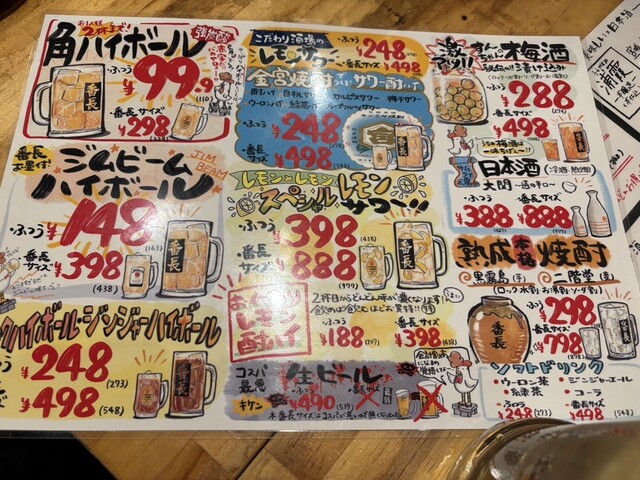 お1人様2杯まで!
強炭酸
角ハイボール
・ふつう
¥99.9
(110)
番長サイズ
¥298
番長
番長お墨付!
ジムビーム
ハイボール
JIM BEAM
・ふつう
¥148
(163)
・番長サイズ
¥398
(438)
番長
クハイボール・ジンジャーハイボール
ふつう
¥248
(273)
¥498
(548)
番長
こだわり酒場の
レモンサワー
・ふつう
¥248
(273)
・番長サイズ
¥498
金宮焼酎
サワー・酎ハイ
ウーロンハイ
梅干サワー
・ふつう
¥248
・番長サイズ
¥498
(548)
レモン×レモン
スペシャルレモンサワー
・ふつう
¥398
(438)
・番長サイズ
¥888
(977)
番長
おかわりレモン酎ハイ
2杯目からどんどん味が濃くなります!
・ふつう
¥188
(207)
・番長サイズ
¥398
(438)
コスパ最悪
キケン
生ビール
・ふつう
¥490
(539)
激アツ!!
梅酒
・ふつう
¥288
・番長サイズ
¥498
(548)
日本酒
(冷酒・熱燗)
大関
¥388
(427)
¥888
(977)
熟成本格焼酎
黒霧島(芋)
二階堂(麦)
(ロック・水割・お湯割・ソーダ割)
・ふつう
¥298
・番長サイズ
¥798
番長
ソフトドリンク
・ウーロン茶
・ジンジャエール
・緑茶
・コーラ
・ふつう
¥248
(273)
・番長サイズ
¥498
(548)